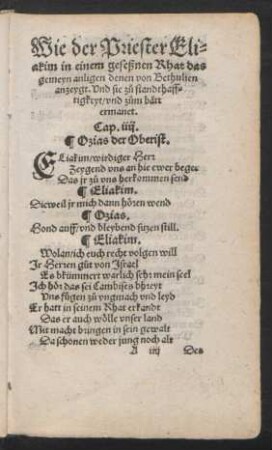 Wie der Priester Eli-
akim in einem gesessnen Rhat das
gemeyn anligen denen von Bethulien
anzeygt. Vnd sie zů standthaff-
tigkeyt/vnd zům bätt
ermanet.
Cap. iiij.
¶ Ozias der Oberist.
Eliakim/wirdiger Herr
Zeygend vns an hie ewer beger
Das jr zů vns herkommen send
¶ Eliakim.
Dieweil jr mich dann hören wend
¶ Ozias.
Hond auff/vnd bleybend sitzen still.
¶ Eliakim.
Wolan/ich euch recht volgen will
Jr Herren gůt von Israel
Es bkümmert warlich sehr mein seel
Ich hör das sei Cambises bhreyt
Vns fügen zů vngmach vnd leyd
Er hatt in seinem Rhat erkandt
Das er auch wölle vnser land
Mit macht bringen in sein gewalt
Da schonen weder jung noch alt
A iiij Des